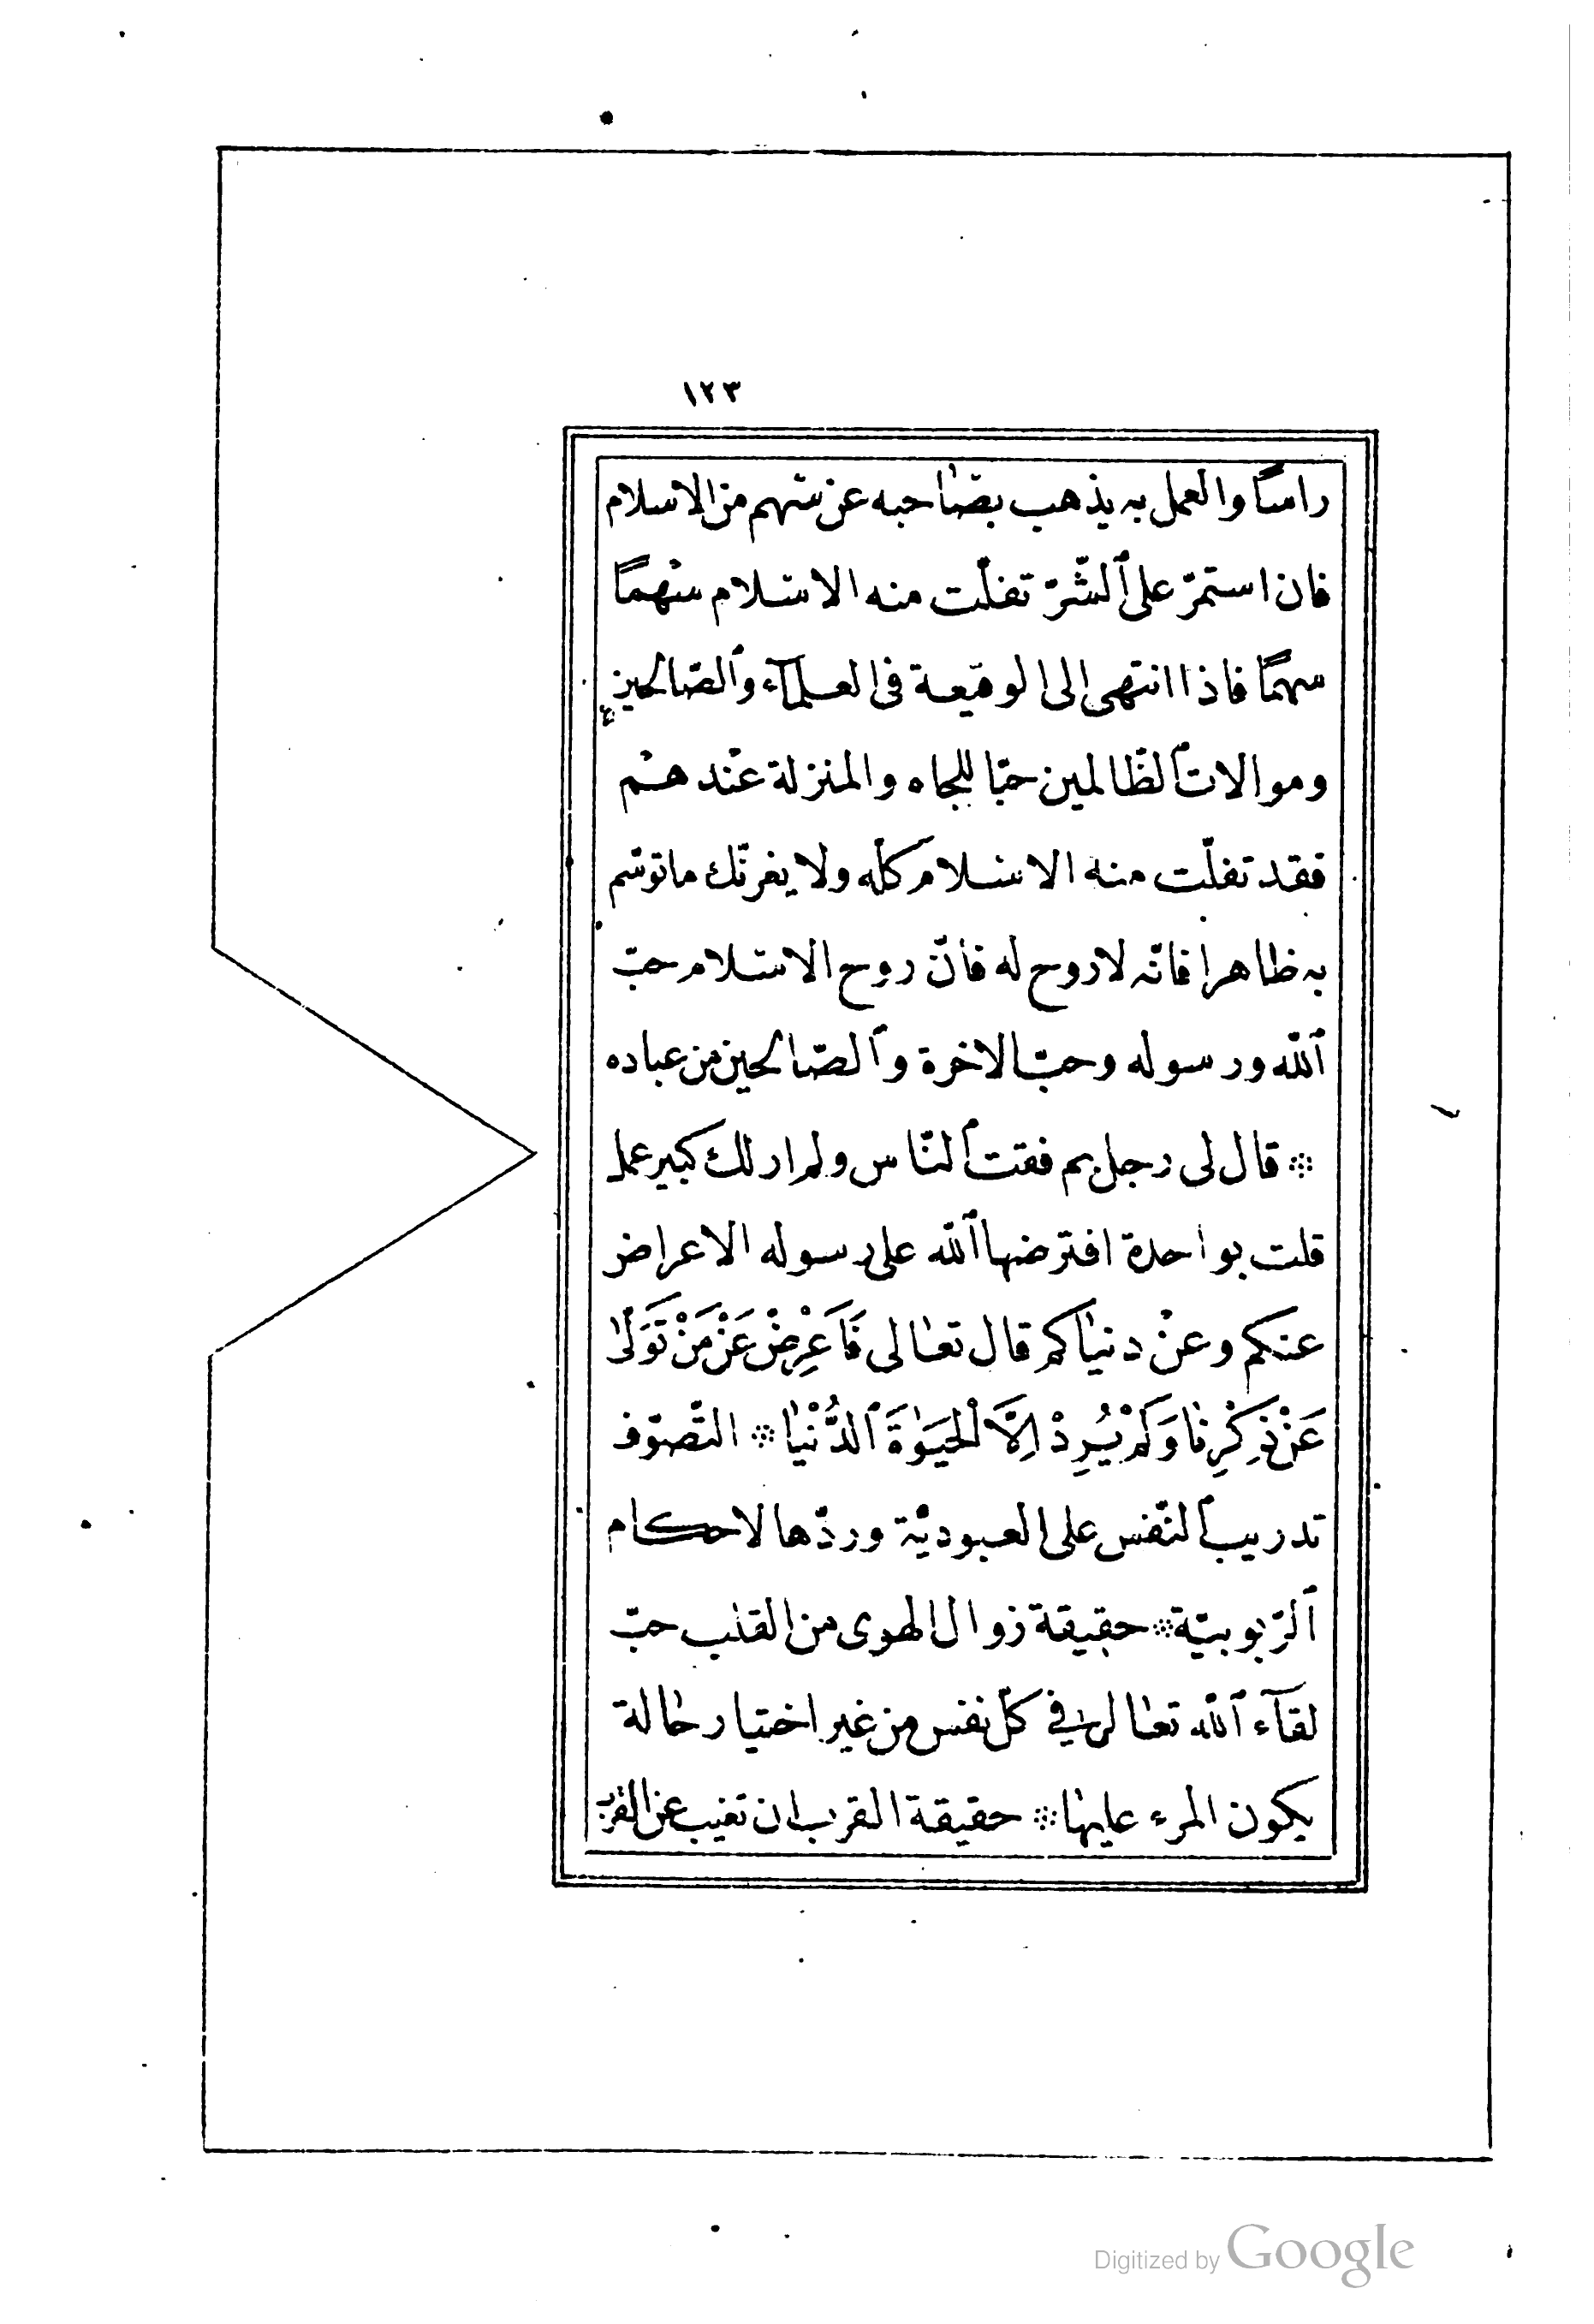 ١٢٣
راسًا والعمل به يذهب بصاحبه عن سهم من الاسلام
فان استمرّ على ٱلشّرّ تفلّت منه الاسلام سهمًا
سهمًا فاذا انتهى الى الوقيعة فى العلمآء وٱلصّالحين
وموالات ٱلظّالمين حبّا للجاه والمنزلة عندهم
فقد تفلّت منه الاسلام كلّه ولا يغرنّك ما توسّم
به ظاهرا فانّه لا روح له فانّ روح الاسلام حبّ
ٱللّه ورسوله وحبّ الاخرة وٱلصّالحين من عباده
܀ قال لى رجل بم فقت ٱلنّاس ولم ار لك كبير عمل
قلت بواحدة افترضها ٱللّه على رسوله الاعراض
عنكم وعن دنياكم قال تعالى فَاَعْرِضْ عَنْ مَنْ تَوَلّٰى
عَنْ ذِكْرِنَا وَلَمْ يُرِدْ اِلَّا الْحَيَوٰةَ ٱلدُّنْيَا ܀ التّصوّف
تدريب ٱلنّفس على العبوديّة وردّها لاحكام
ٱلرّبوبيّة ܀ حقيقة زوال الهوى من القلب حبّ
لقآء ٱللّه تعالى فى كلّ نفس من غير اختيار حالة
يكون المرء عليها ܀ حقيقة القرب ان تغيب عن القرب
Digitized by Google